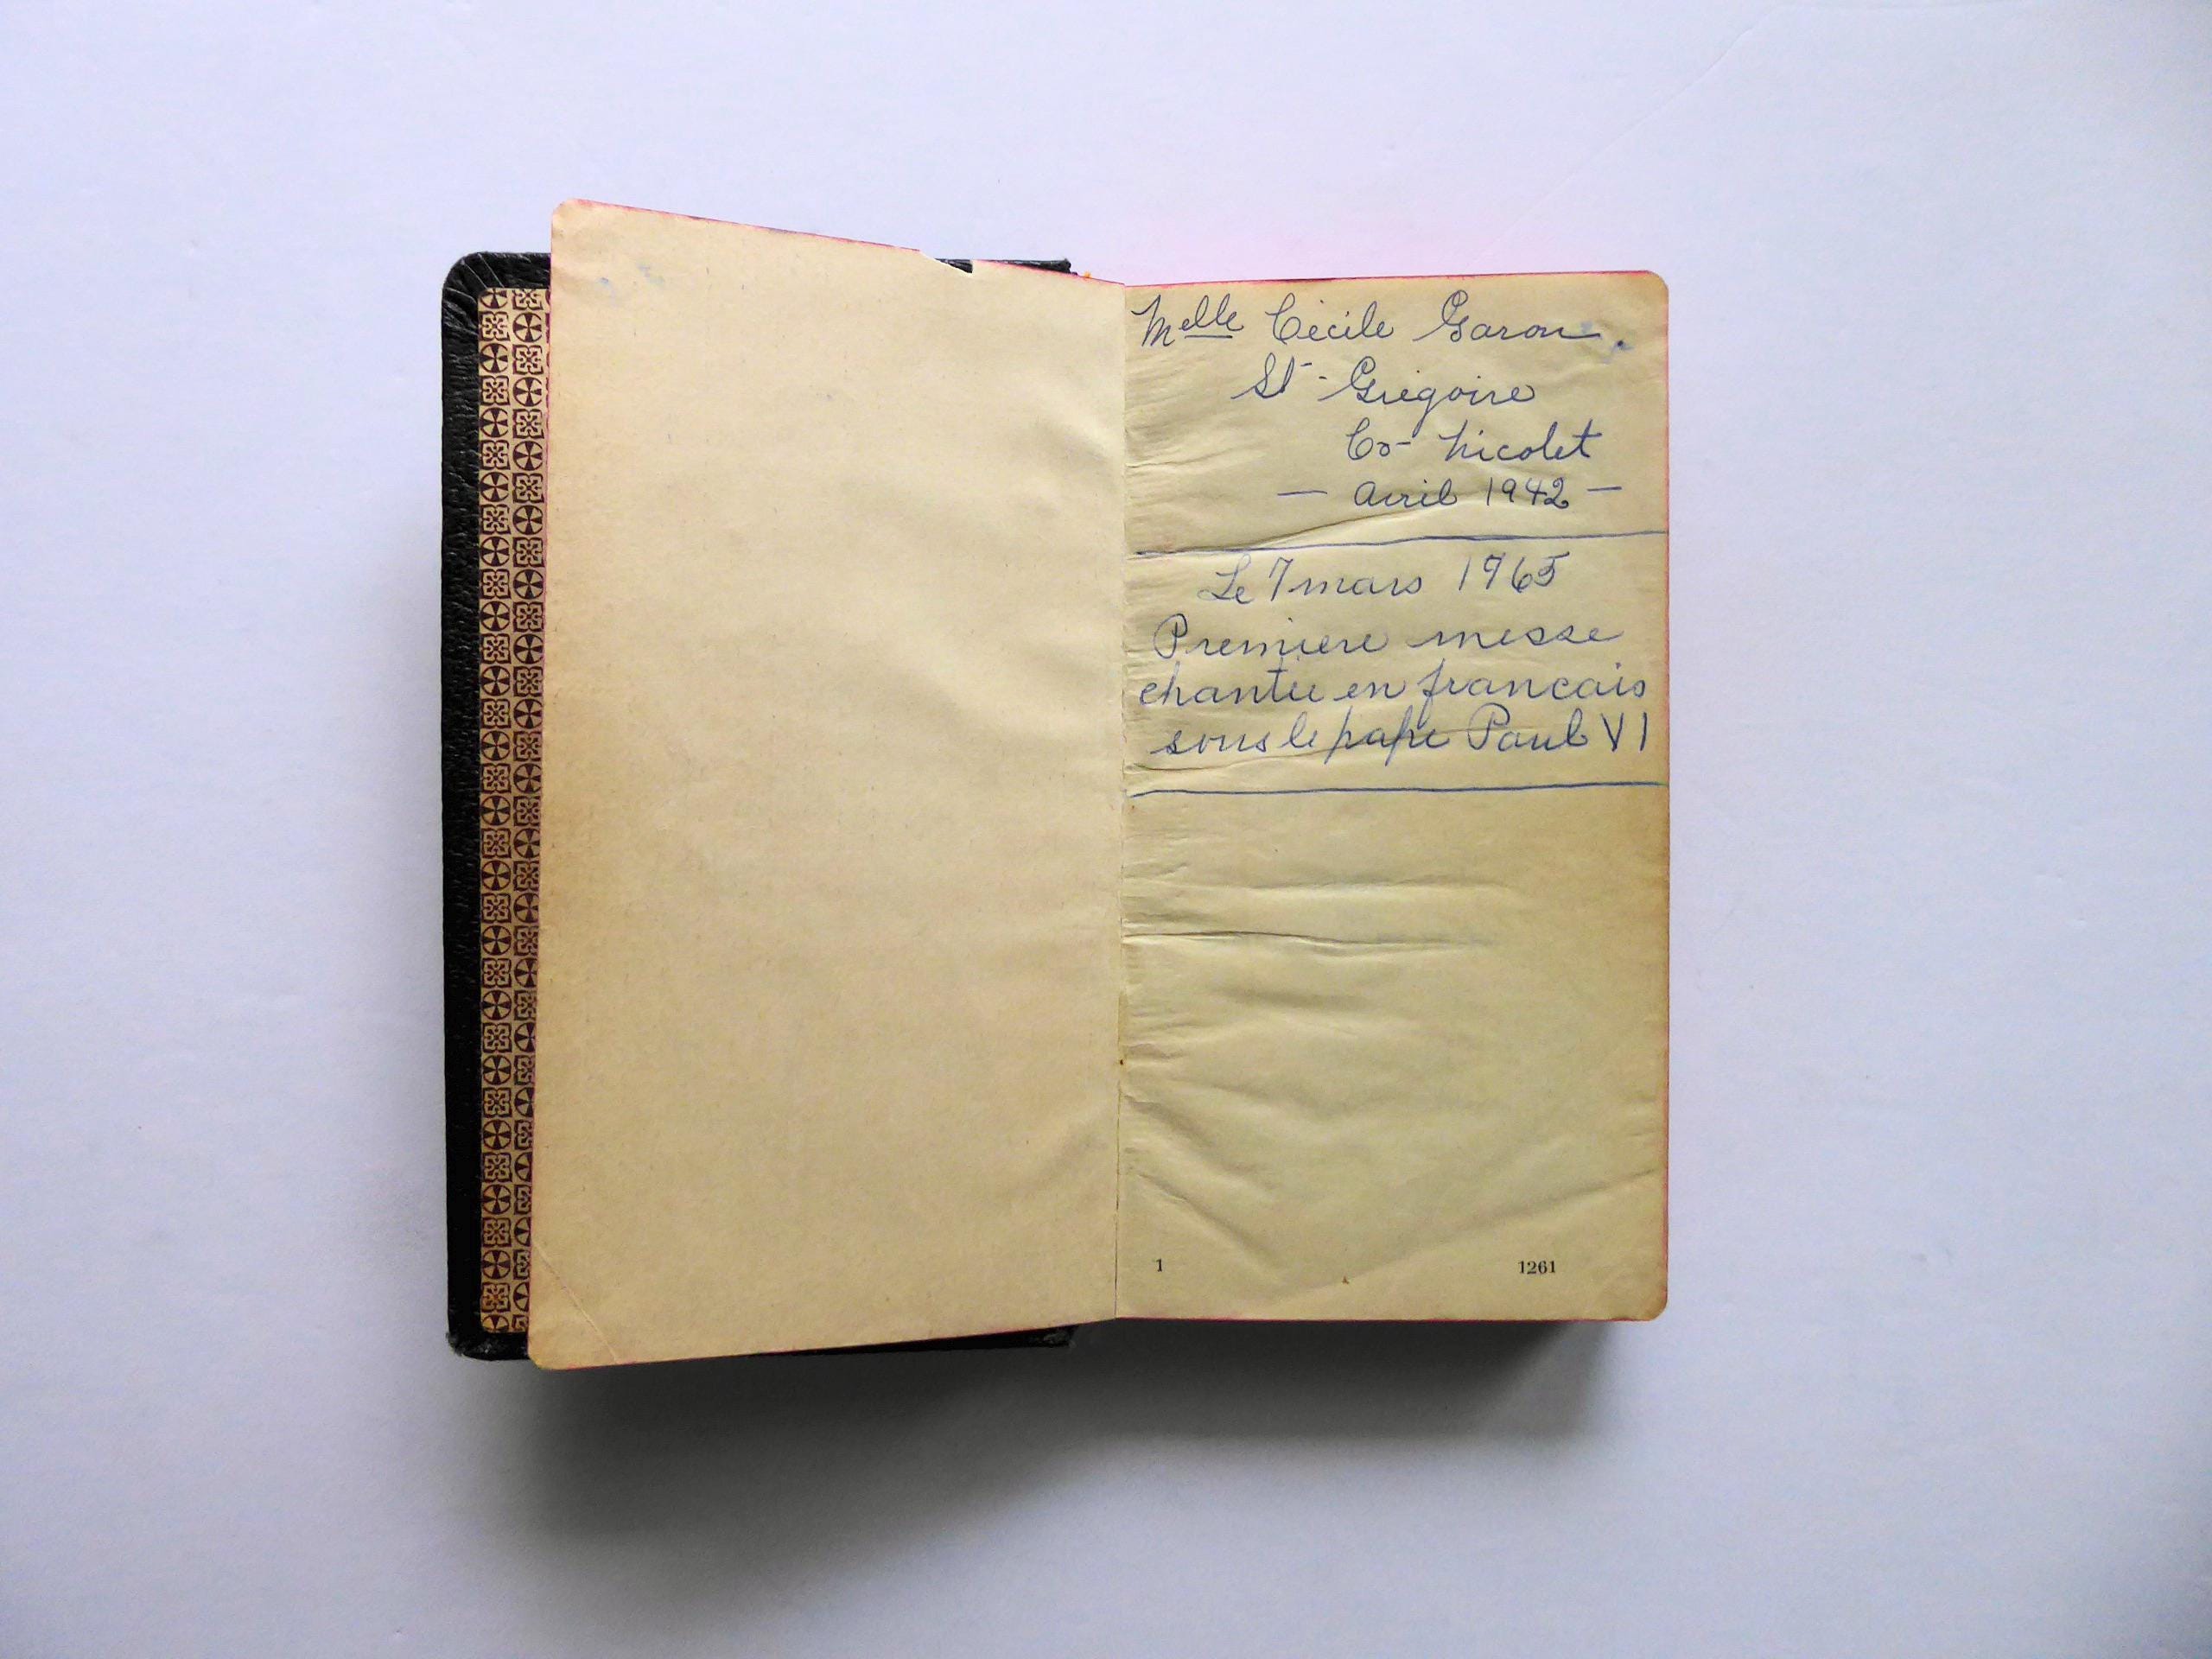 Melle Cécile Garon.
St-Grégoire
Co- Nicolet
— Avril 1942 —
Le 7 mars 1965
Premiere messe
chantée en francais
sous le pape Paul VI
1 1261